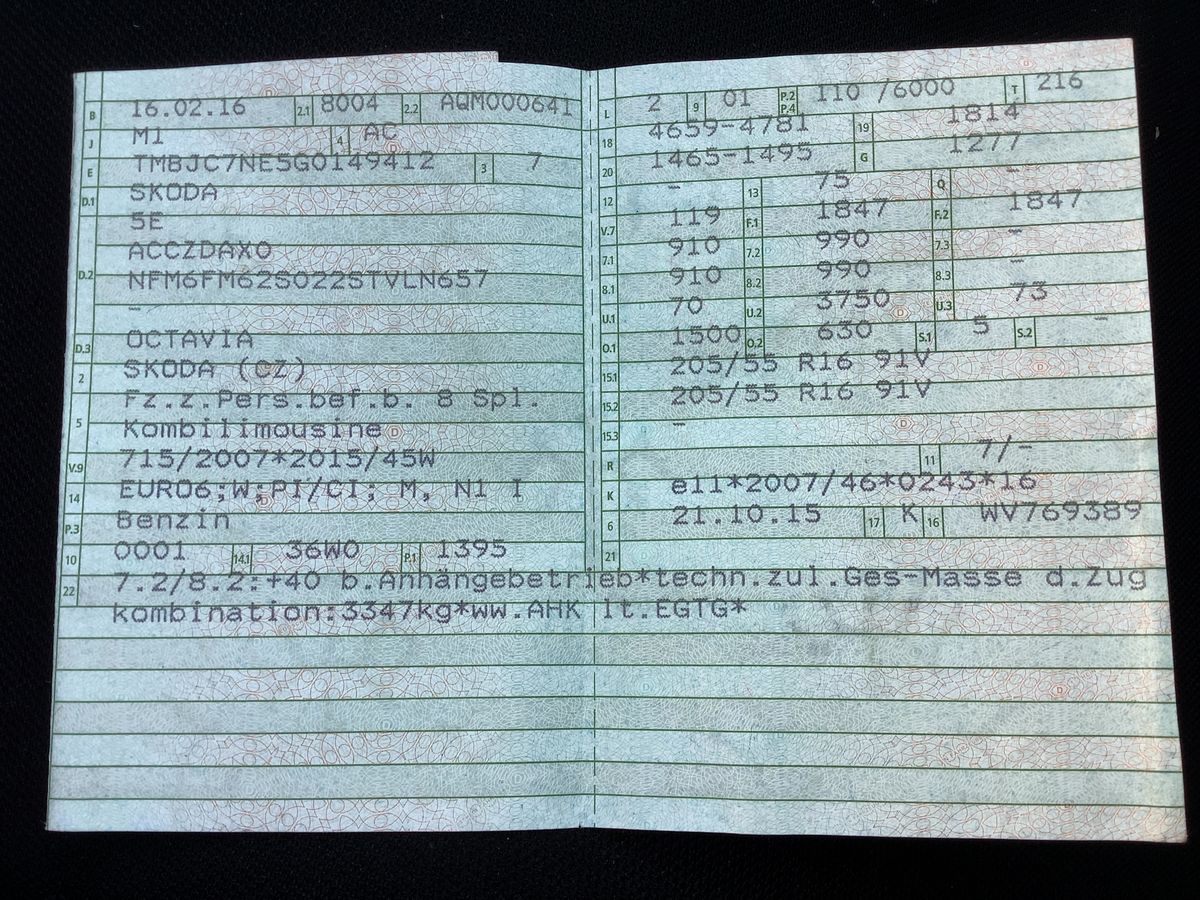 B 16.02.16 2.1 8004 2.2 AQM000641
J M1 4 AC
E TMBJC7NE5G0149412 3 7
D.1 SKODA
5E
D.2 ACCZDAX0
NFM6FM62S022STVLN657
-
D.3 OCTAVIA
2 SKODA (CZ)
5 Fz.z.Pers.bef.b. 8 Spl.
Kombilimousine
V.9 715/2007*2015/45W
14 EURO6;W;PI/CI; M, N1 I
P.3 Benzin
10 0001 14.1 36W0 P.1 1395
L 2 9 01 P.2 P.4 110 /6000 T 216
18 4659-4781 19 1814
20 1465-1495 G 1277
12 - 13 75 Q -
V.7 119 F.1 1847 F.2 1847
7.1 910 7.2 990 7.3 -
8.1 910 8.2 990 8.3 -
U.1 70 U.2 3750 U.3 73
O.1 1500 O.2 630 S.1 5 S.2 -
15.1 205/55 R16 91V
15.2 205/55 R16 91V
15.3 -
R 11 7/-
K e11*2007/46*0243*16
6 21.10.15 17 K 16 WV769389
21
22 7.2/8.2:+40 b.Anhängebetrieb*techn.zul.Ges-Masse d.Zug
kombination:3347kg*ww.AHK lt.EGTG*